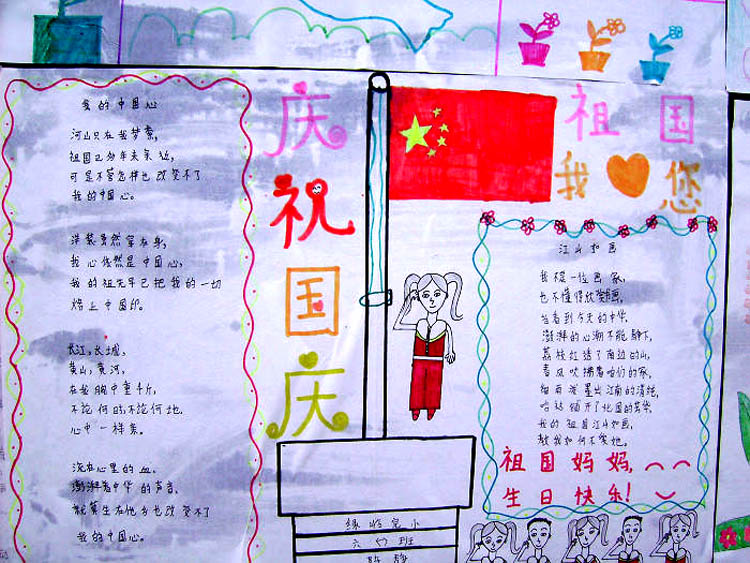 爱的中国心
河山只在我梦萦,
可是不管怎样也改变不了
我的中国心。
洋装虽然穿在身,
我心依然是中国心,
我的祖先早已把我的一切
烙上中国印。
长江,长城,
黄山,黄河,
在我胸中重千斤,
不论何时,不论何地.
心中一样亲。
流在心里的血,
澎湃着中华的声音,
就算生在他乡也改变不了
我的中国心。
庆祝国庆
祖国
我您
江山如画
我不是一位画家,
也不懂得欣赏画,
当看到今天的中华,
澎湃的心潮不能静下,
荔枝红透了南边的山,
春风吹拂着咱们的家,
细雨泼墨出江南的清纯,
哈达铺开了北国的芳华,
我的祖国江山如画,
教我如何不爱她。
祖国妈妈,
生日快乐!